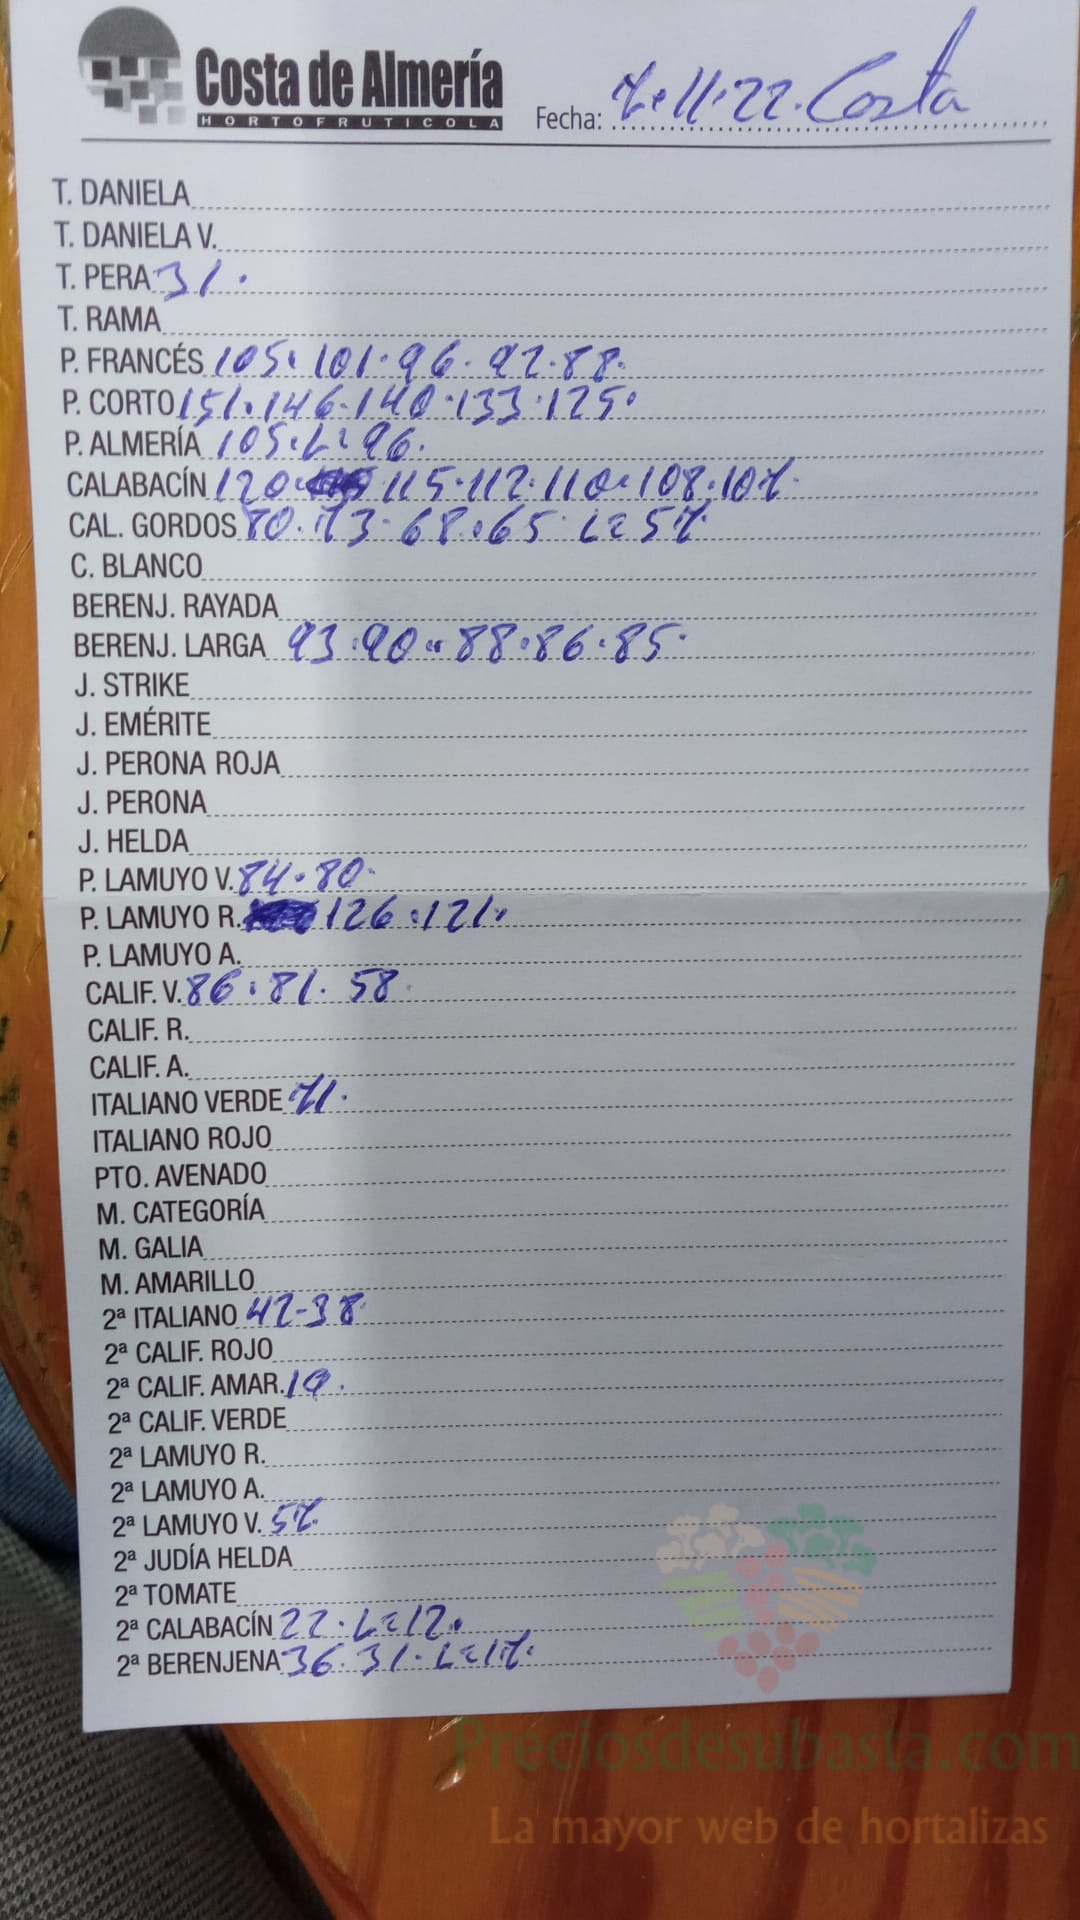 Costa de Almería
HORTOFRUTICOLA
Fecha: 7.11.22. Costa
T. DANIELA
T. DANIELA V.
T. PERA 31.
T. RAMA
P. FRANCÉS 105. 101. 96. 92. 88.
P. CORTO 151. 146. 140. 133. 125.
P. ALMERÍA 105. L= 96.
CALABACÍN 120. 115. 112. 110. 108. 107.
CAL. GORDOS 80. 73. 68. 65 L= 57.
C. BLANCO
BERENJ. RAYADA
BERENJ. LARGA 93. 90. 88. 86. 85.
J. STRIKE
J. EMÉRITE
J. PERONA ROJA
J. PERONA
J. HELDA
P. LAMUYO V. 84. 80.
P. LAMUYO R. 126. 121.
P. LAMUYO A.
CALIF. V. 86. 81. 58.
CALIF. R.
CALIF. A.
ITALIANO VERDE 71.
ITALIANO ROJO
PTO. AVENADO
M. CATEGORÍA
M. GALIA
M. AMARILLO
2ª ITALIANO 42-38.
2ª CALIF. ROJO
2ª CALIF. AMAR.
2ª CALIF. VERDE
2ª LAMUYO R.
2ª LAMUYO A.
2ª LAMUYO V. 57.
2ª JUDÍA HELDA
2ª TOMATE
2ª CALABACÍN 22. L= 12.
2ª BERENJENA 36. 31. L= 17.
Preciosdesubasta.com
La mayor web de hortalizas